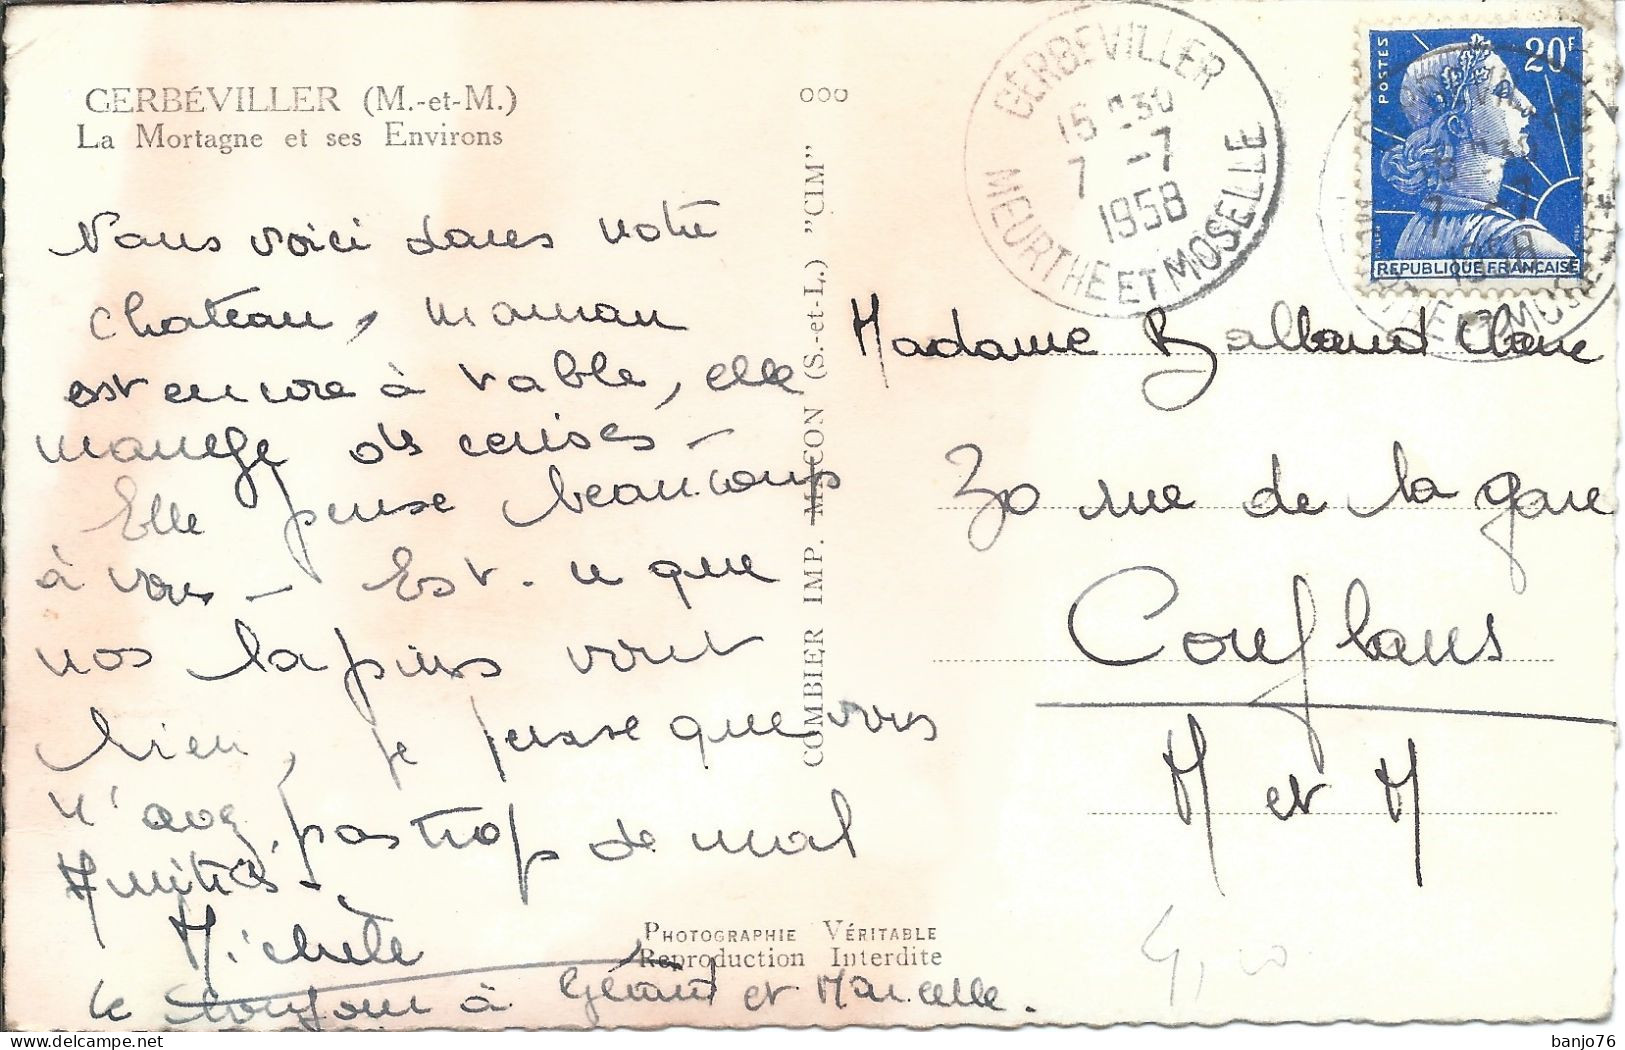 GERBÉVILLER (M.-et-M.)
La Mortagne et ses Environs
Nous voici dans notre
chateau, maman
est encore à table, elle
mange des cerises –
Elle pense beaucoup
à vous – Est-ce que
nos lapins vont
bien, je pense que vous
n'avez pas trop de mal
Amitiés.
Michèle
le bonjour à Gérard et Marcelle.
COMBIER IMP. MACON (S.-et-L.) "CIM"
PHOTOGRAPHIE VÉRITABLE
Reproduction Interdite
GERBEVILLER
15 H30
7 -7
1958
MEURTHE ET MOSELLE
POSTES
20F
REPUBLIQUE FRANÇAISE
Madame Balland
30 rue de la gare
Conflans
M et M
banjo76